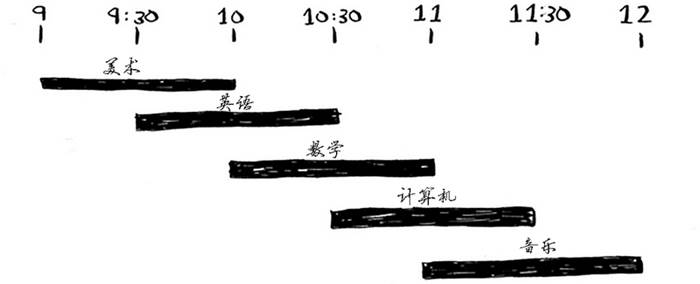 9 9:30 10 10:30 11 11:30 12
美术
英语
数学
计算机
音乐